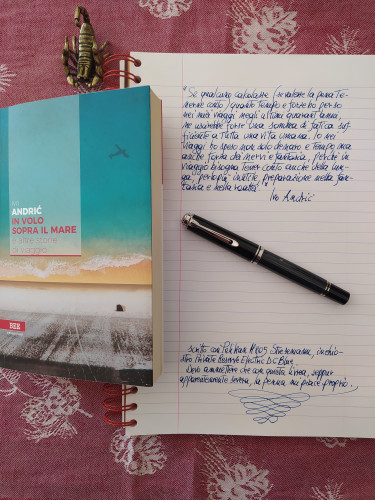 IVO
ANDRIĆ
IN VOLO
SOPRA IL MARE
e altre storie
di viaggio
BEE
"Se qualcuno calcolasse (se valesse la pena te-
nerne conto) quanto tempo e forze ho perso
nei miei viaggi negli ultimi quarant'anni,
ne uscirebbe forse una somma di fatica suf-
ficiente a tutta una vita umana. Io nei
viaggi ho speso non solo denaro e tempo ma
anche forza dei nervi e fantasia, perché in
viaggio bisogna tener conto anche della lun-
ga, perlopiù inutile, preparazione nella fan-
tasia e nella realtà."
Ivo Andrić
scritto con Pelikan M805 Stresemann, inchio-
stro Private Reserve Electric DC Blue.
Devo ammettere che con questa livrea, seppur
apparentemente severa, la penna mi piace proprio.